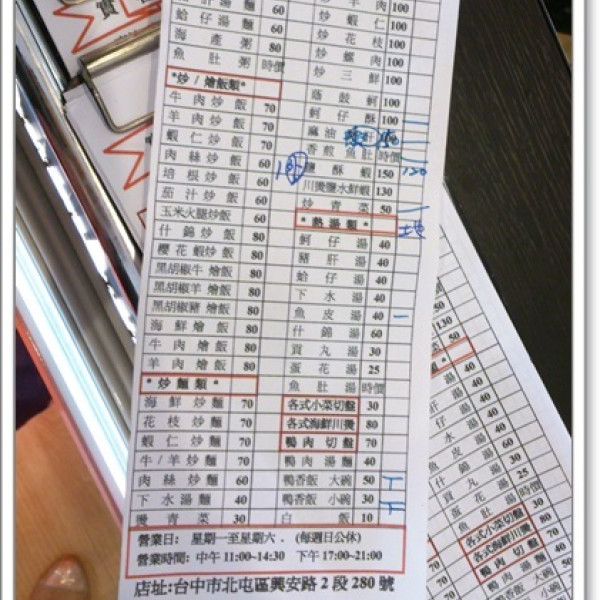 蛤仔湯麵 60
海產粥 80
魚肚粥 時價
*炒/燴飯類*
牛肉炒飯 70
羊肉炒飯 70
蝦仁炒飯 70
肉絲炒飯 60
培根炒飯 60
茄汁炒飯 60
玉米火腿炒飯 60
什錦炒飯 80
櫻花蝦炒飯 80
黑胡椒牛燴飯 80
黑胡椒羊燴飯 80
黑胡椒豬燴飯 80
海鮮燴飯 80
牛肉燴飯 80
羊肉燴飯 80
*炒麵類*
海鮮炒麵 70
花枝炒麵 70
蝦仁炒麵 70
牛/羊炒麵 70
肉絲炒麵 60
下水湯麵 40
燙青菜 30
羊肉 100
炒蝦仁 100
炒花枝 100
炒螺肉 100
炒三鮮 100
蔭鼓蚵 100
蚵仔酥 100
麻油
香煎魚肚 時價
鹽酥蝦 150
120
川燙鹽水鮮蝦 130
炒青菜 50
*熱湯類*
蚵仔湯 40
豬肝湯 40
蛤仔湯 40
下水湯 40
魚皮湯 40
什錦湯 60
貢丸湯 30
蛋花湯 25
魚肚湯 時價
各式小菜切盤 30
各式海鮮川燙 80
鴨肉切盤 70
鴨肉湯麵 40
鴨香飯 大碗 50
鴨香飯 小碗 30
白飯 10
營業日: 星期一至星期六 . (每週日公休)
營業時間: 中午 11:00~14:30 下午 17:00~21:00
店址:台中市北屯區興安路 2 段 280 號
130
50
湯 40
湯 40
湯 40
水湯 40
魚皮湯 40
什錦湯 60
貢丸湯 30
蛋花湯 25
魚肚湯 時價
各式小菜切盤 30
各式海鮮川燙 80
鴨肉切盤 70
鴨肉湯麵 40
鴨香飯 大碗 50